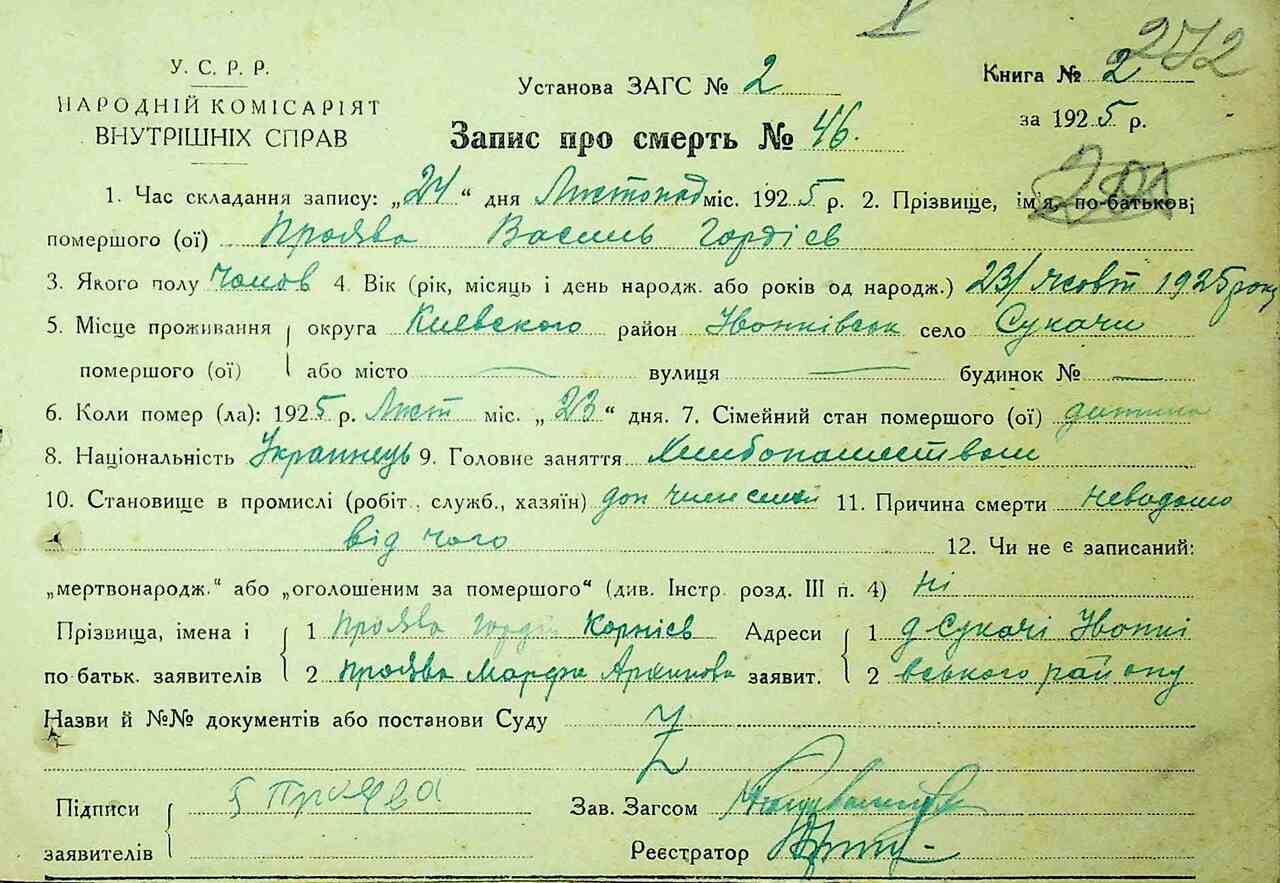 272
У. С. Р. Р.
НАРОДНІЙ КОМІСАРІЯТ
ВНУТРІШНІХ СПРАВ
Установа ЗАГС № 2
Книга № 2
за 1925 р.
Запис про смерть № 46.
201
1. Час складання запису: „24“ дня Листопад міс. 1925 р. 2. Прізвище, ім'я, по-батькові
помершого (ої) Проява Василь Гордієв
3. Якого полу чолов 4. Вік (рік, місяць і день народж. або років од народж.) 23/ жовт 1925 року
5. Місце проживання округа Киевского район Іванківськ село Сукачи
помершого (ої) або місто — вулиця — будинок № —
6. Коли помер (ла): 1925 р. Лист міс. „23“ дня. 7. Сімейний стан помершого (ої) дитина
8. Національність Украинець 9. Головне заняття Хлибопашеством
10. Становище в промислі (робіт., служб., хазяїн) доп член семьи 11. Причина смерти неводомо
від чого 12. Чи не є записаний:
„мертвонародж.“ або „оголошеним за помершого“ (див. Інстр. розд. III п. 4) ні
Прізвища, імена і 1 Проява Гордій Корнієв Адреси 1 д Сукачі Іванкі
по батьк. заявителів 2 Проява Марфа Архипова заявит. 2 вського району
Назви й №№ документів або постанови Суду
Підписи Г Проява Зав. Загсом
заявителів Реєстратор